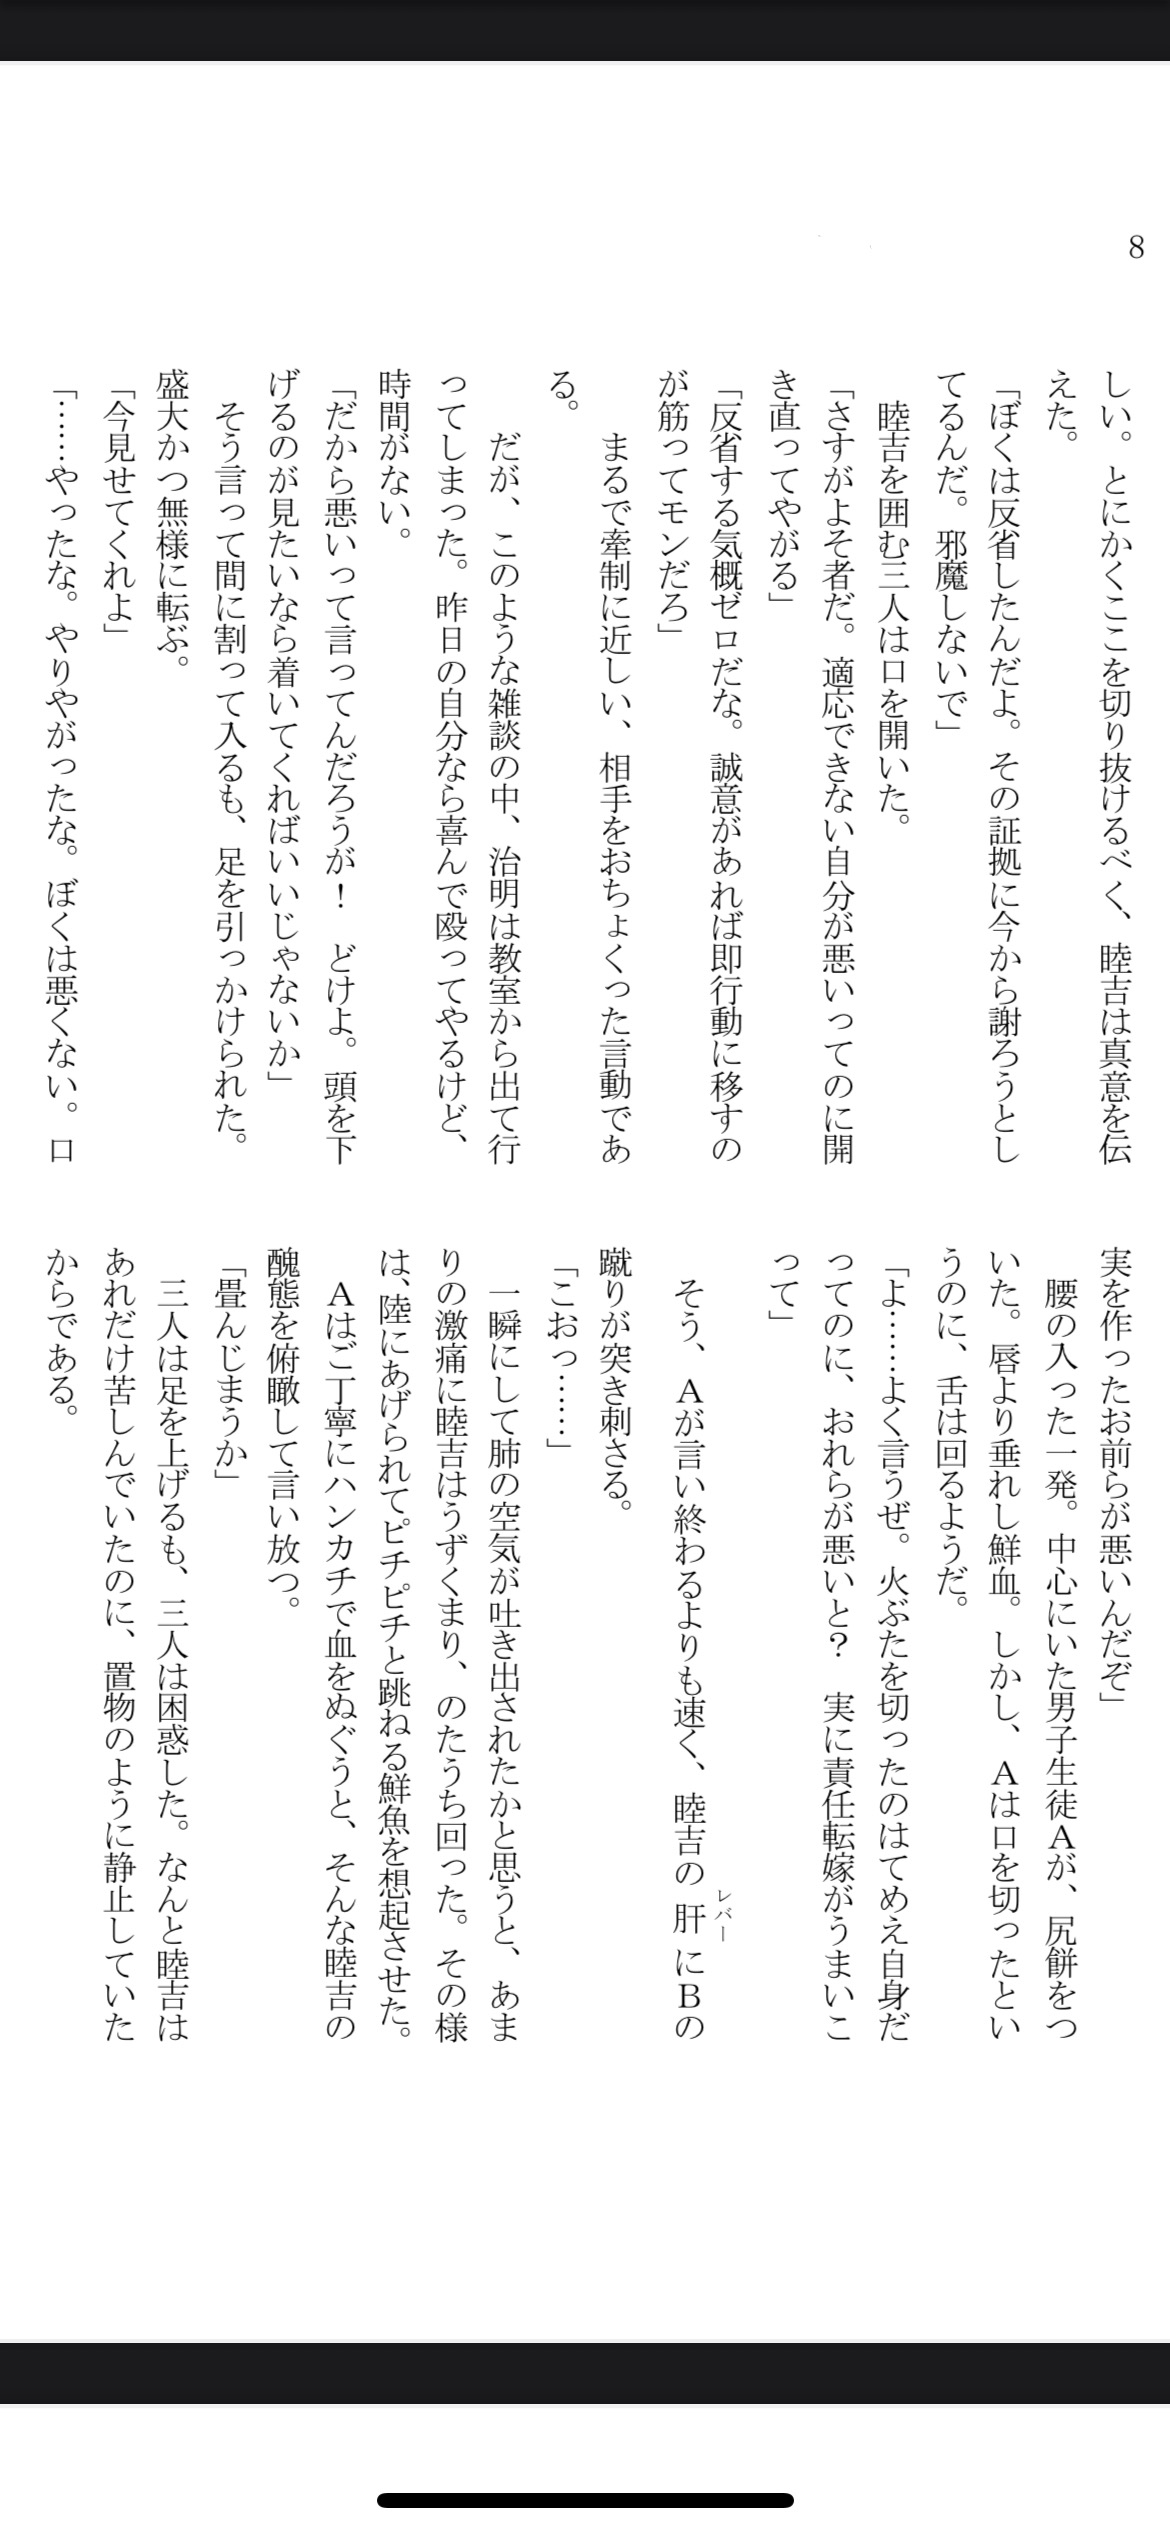 8
しい。とにかくここを切り抜けるべく、睦吉は真意を伝
えた。
「ぼくは反省したんだよ。その証拠に今から謝ろうとし
てるんだ。邪魔しないで」
睦吉を囲む三人は口を開いた。
「さすがよそ者だ。適応できない自分が悪いってのに開
き直ってやがる」
「反省する気概ゼロだな。誠意があれば即行動に移すの
が筋ってモンだろ」
まるで牽制に近しい、相手をおちょくった言動であ
る。
だが、このような雑談の中、治明は教室から出て行
ってしまった。昨日の自分なら喜んで殴ってやるけど、
時間がない。
「だから悪いって言ってんだろうが！　どけよ。頭を下
げるのが見たいなら着いてくればいいじゃないか」
そう言って間に割って入るも、足を引っかけられた。
盛大かつ無様に転ぶ。
「今見せてくれよ」
「……やったな。やりやがったな。ぼくは悪くない。口
実を作ったお前らが悪いんだぞ」
腰の入った一発。中心にいた男子生徒Ａが、尻餅をつ
いた。唇より垂れし鮮血。しかし、Ａは口を切ったとい
うのに、舌は回るようだ。
「よ……よく言うぜ。火ぶたを切ったのはてめえ自身だ
ってのに、おれらが悪いと？　実に責任転嫁がうまいこ
って」
そう、Ａが言い終わるよりも速く、睦吉の肝にＢの
レバー
蹴りが突き刺さる。
「こおっ……」
一瞬にして肺の空気が吐き出されたかと思うと、あま
りの激痛に睦吉はうずくまり、のたうち回った。その様
は、陸にあげられてピチピチと跳ねる鮮魚を想起させた。
Ａはご丁寧にハンカチで血をぬぐうと、そんな睦吉の
醜態を俯瞰して言い放つ。
「畳んじまうか」
三人は足を上げるも、三人は困惑した。なんと睦吉は
あれだけ苦しんでいたのに、置物のように静止していた
からである。